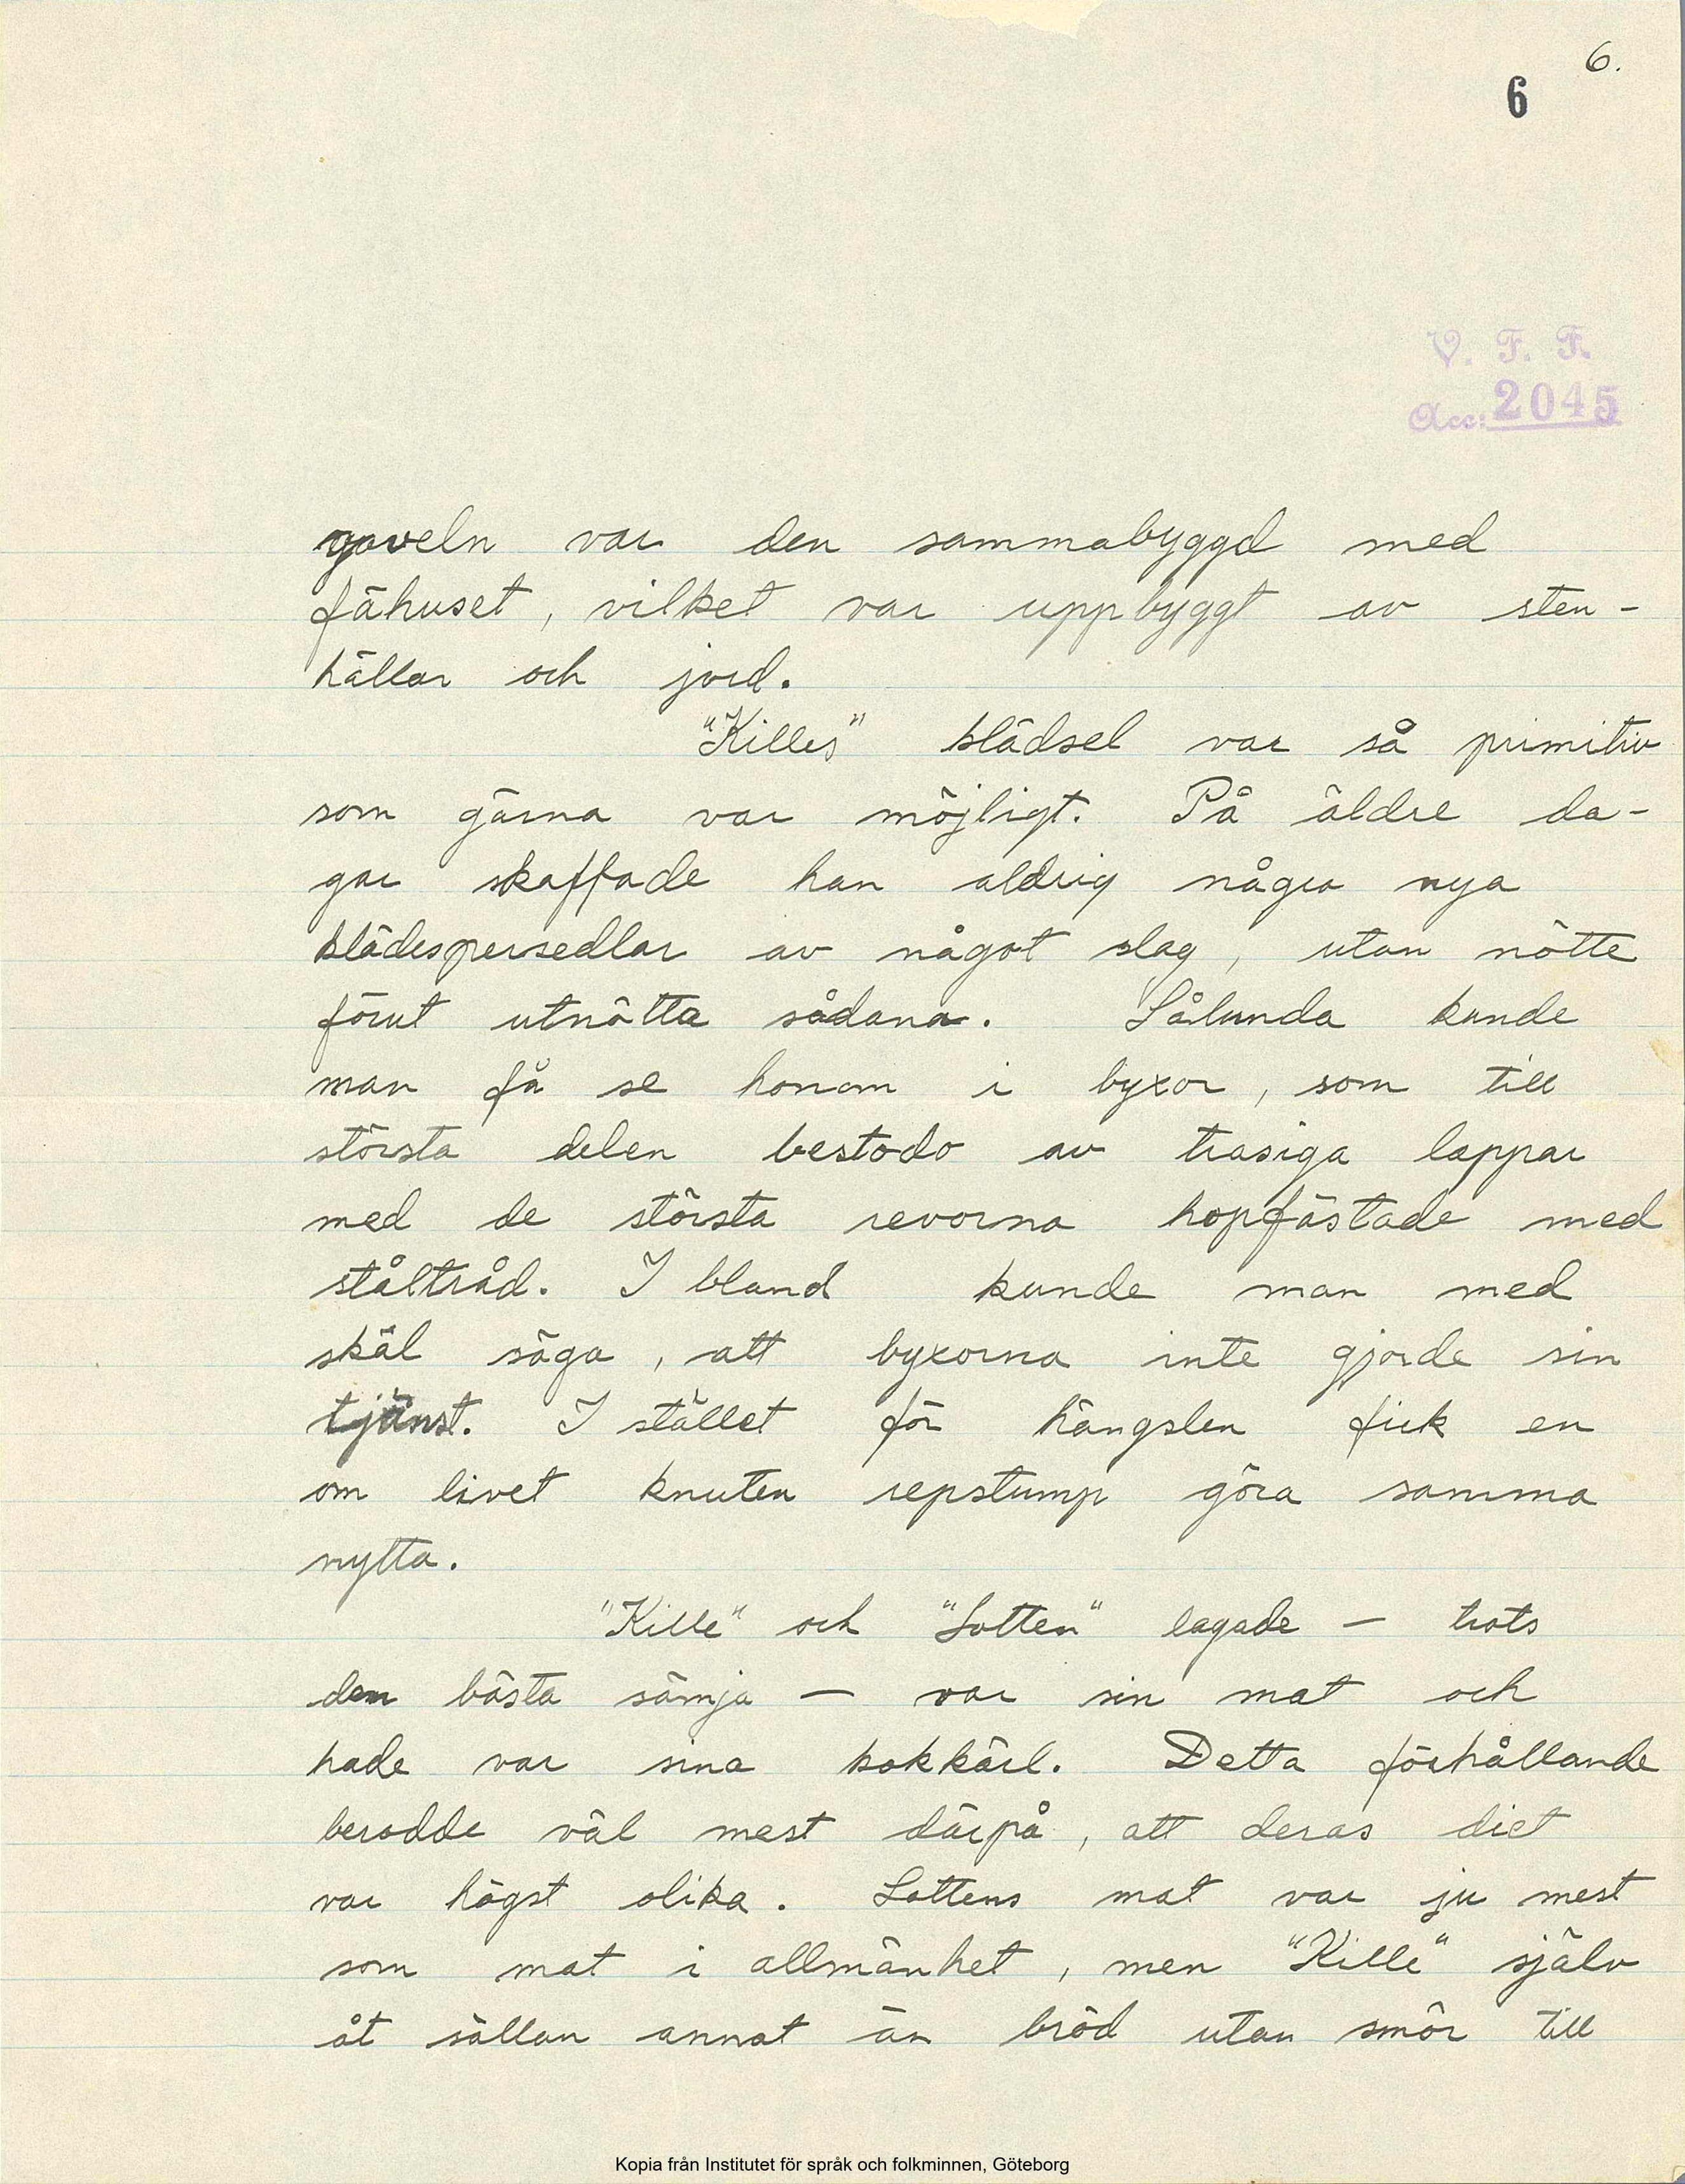 6.
6
V. F. F.
Acc: 2045
gaveln var den sammabyggd med
fähuset, vilket var uppbyggt av sten-
hällar och jord.
"Killes" klädsel var så primitiv
som gärna var möjligt. På äldre da-
gar skaffade han aldrig några nya
klädespersedlar av något slag, utan nötte
förut utnötta sådana. Sålunda kunde
man få se honom i byxor, som till
största delen bestodo av trasiga lappar
med de största revorna hopfästade med
ståltråd. I bland kunde man med
skäl säga, att byxorna inte gjorde sin
tjänst. I stället för hängslen fick en
om livet knuten repstump göra samma
nytta.
"Kille" och "Lotten" lagade – trots
den bästa sämja – var sin mat och
hade var sina kokkärl. Detta förhållande
berodde väl mest därpå, att deras diet
var högst olika. Lottens mat var ju mest
som mat i allmänhet, men "Kille" själv
åt sällan annat än bröd utan smör till
Kopia från Institutet för språk och folkminnen, Göteborg